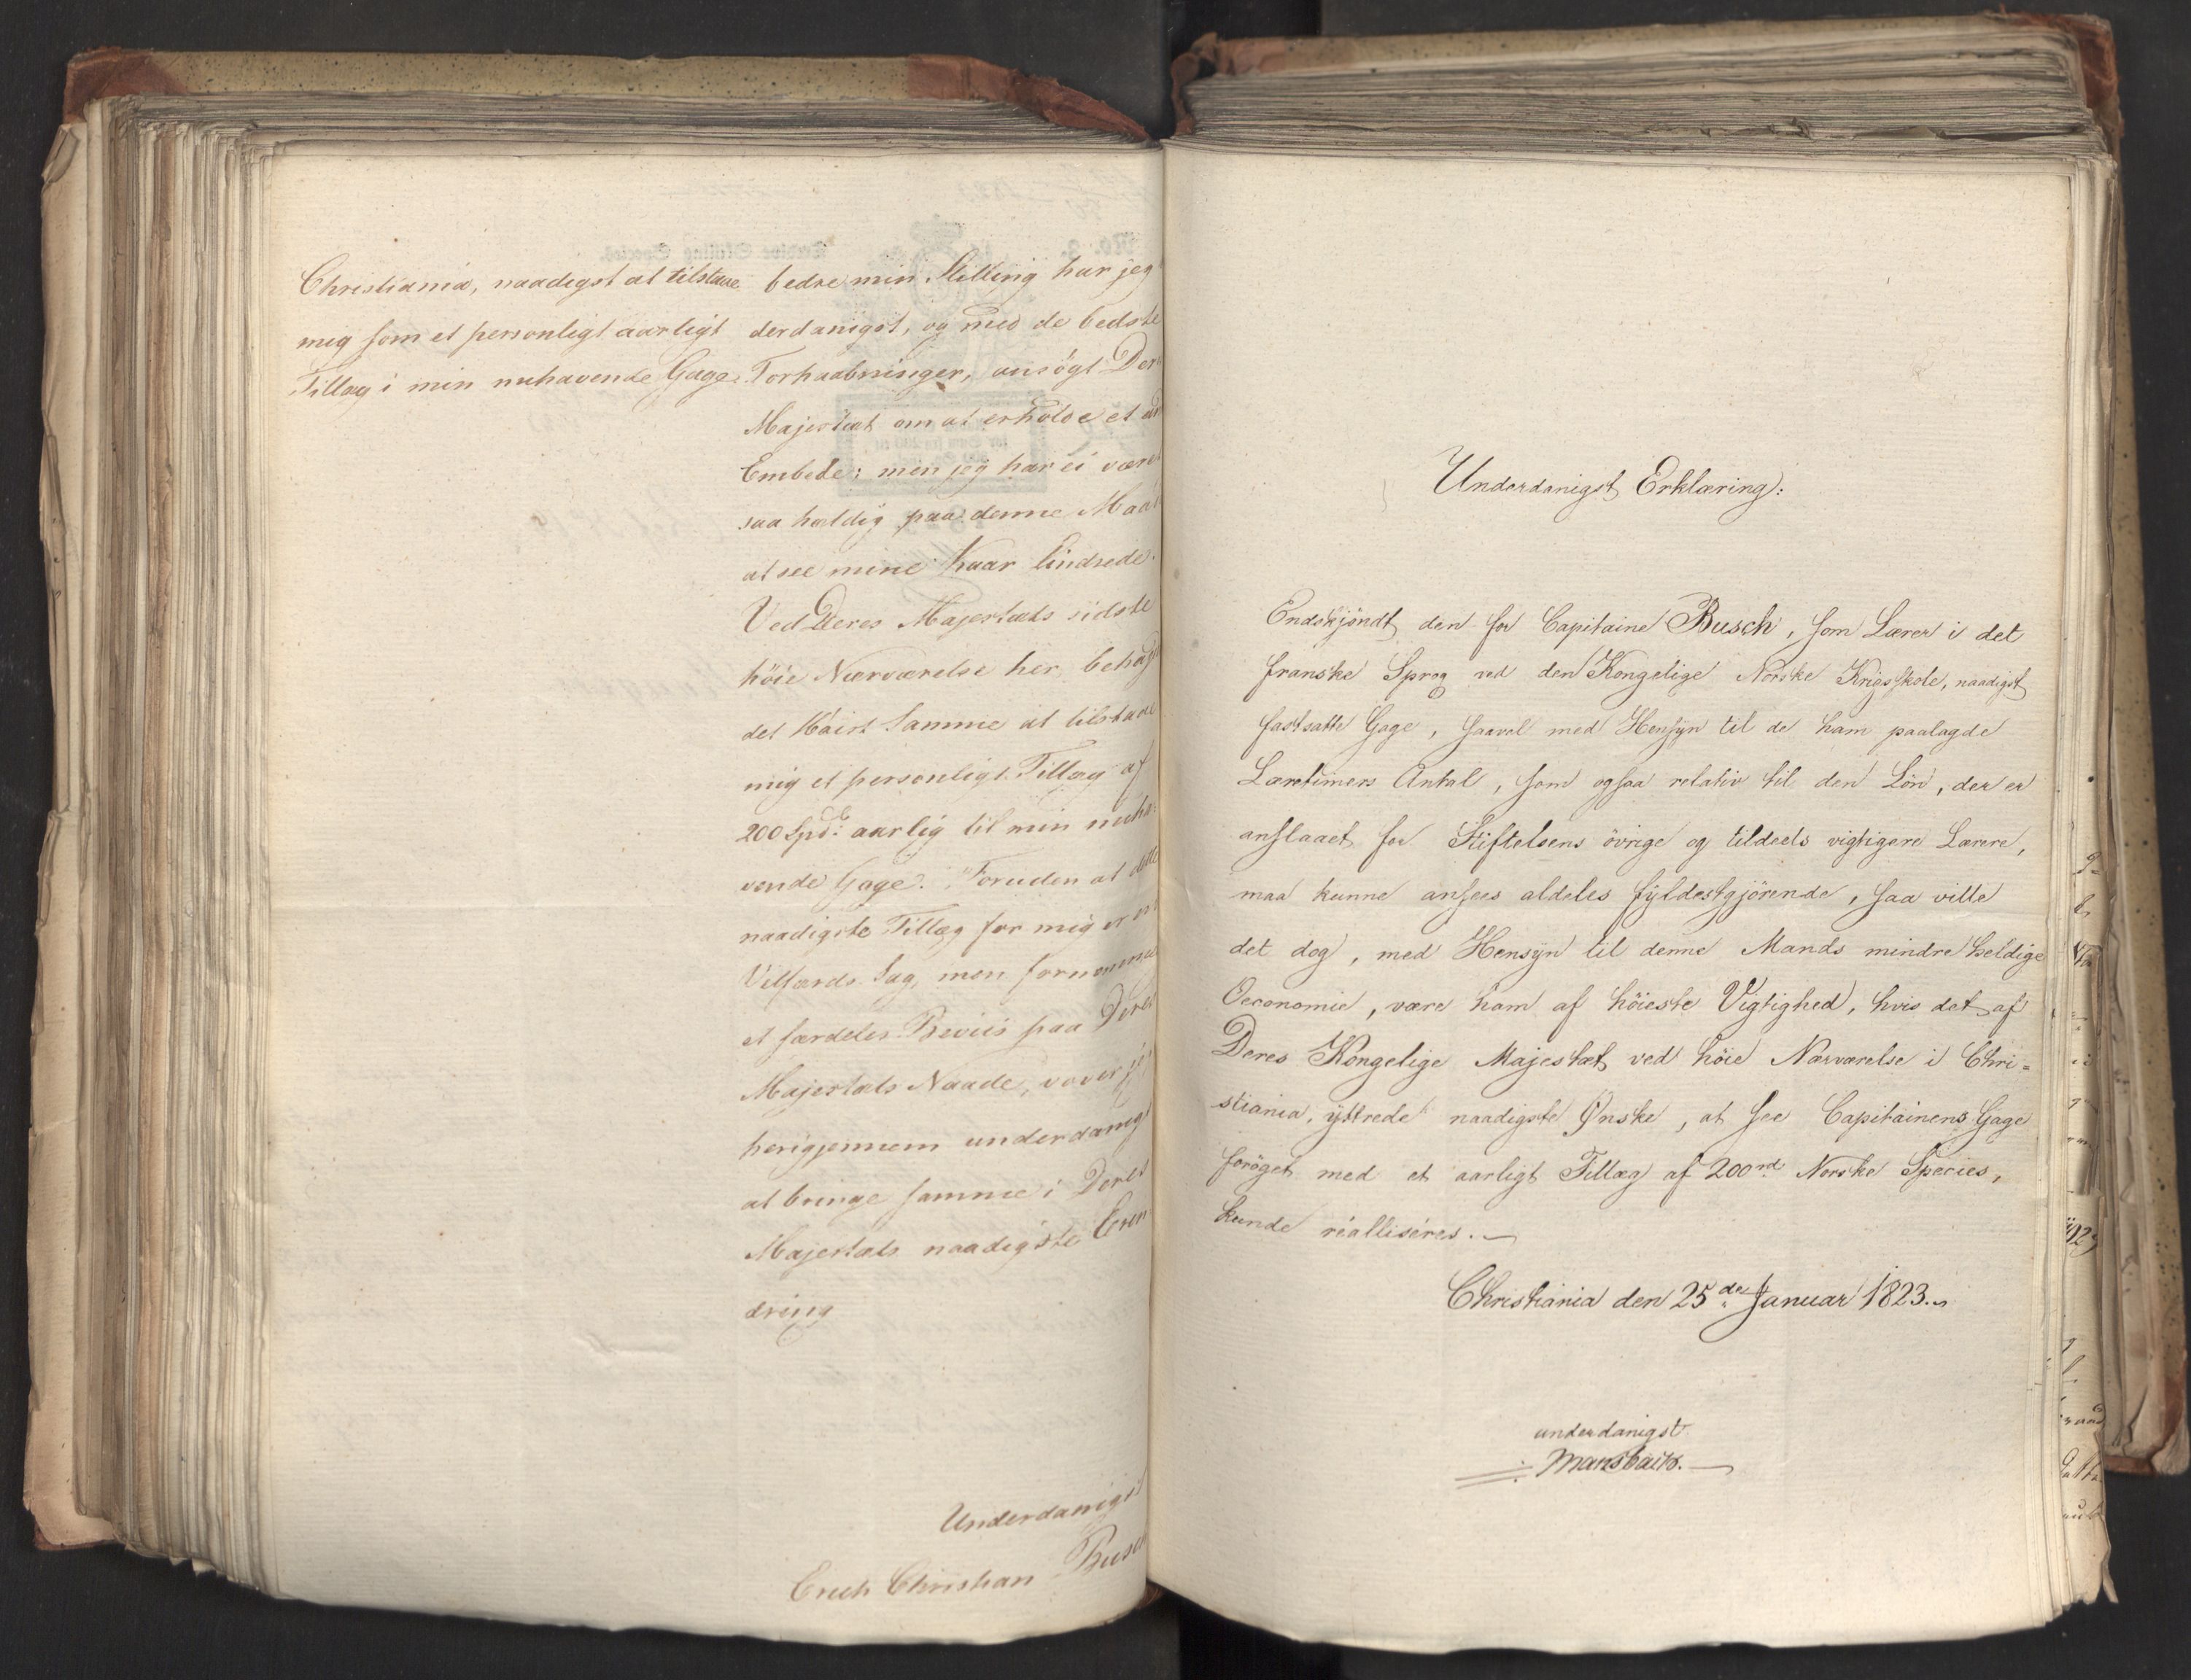 Christiania, naadigst at tilstaae
mig som et personligt aarligt
Tillæg i min nuhavende Gage.
bedre min Stilling har jeg
derdanigst, og med de bedste
Forhaabninger, ansögt Deres
Majestæt om at erholde et
Embede; men jeg har ei været
saa heldig paa denne Maade
at see mine Kaar lindrede.
Ved Deres Majestæts sidste
höie Nærværelse her, behag
det Höist Samme at tilstaae
mig et personligt Tillæg af
200 Spd: aarlig til min nuha-
vende Gage. Foruden at dette
naadigste Tillæg for mig er en
Velfærds Sag, men fornemmelig
et særdeles Beviis paa Deres
Majestæts Naade, vover jeg
herigjennem underdanigst
at bringe samme i Deres
Majestæts naadigste Erin
dring
Underdanigst
Erich Christian Busch
Underdanigst Erklæring:
Endskjöndt den for Capitaine Busch, som Lærer i det
franske Sprog ved den Kongelige Norske Krigsskole, naadigst
fastsatte Gage, saavel med Hensyn til de ham paalagde
Læretimers Antal, som ogsaa relativ til den Lön, der er
anslaaet for Stiftelsens övrige og tildeels vigtigere Lærere,
maa kunne ansees aldeles fyldestgjörende, saa ville
det dog, med Hensyn til denne Mands mindre heldige
Oeconomie, være ham af höieste Vigtighed, hvis det af
Deres Kongelige Majestæt ved höie Nærværelse i Chri=
stiania, yttrede naadigste Ønske, at see Capitainens Gage
foröget med et aarligt Tillæg af 200rd Norske Species,
kunde réalliséres.
Christiania den 25de Januar 1823.
underdanigst
Mansbach.